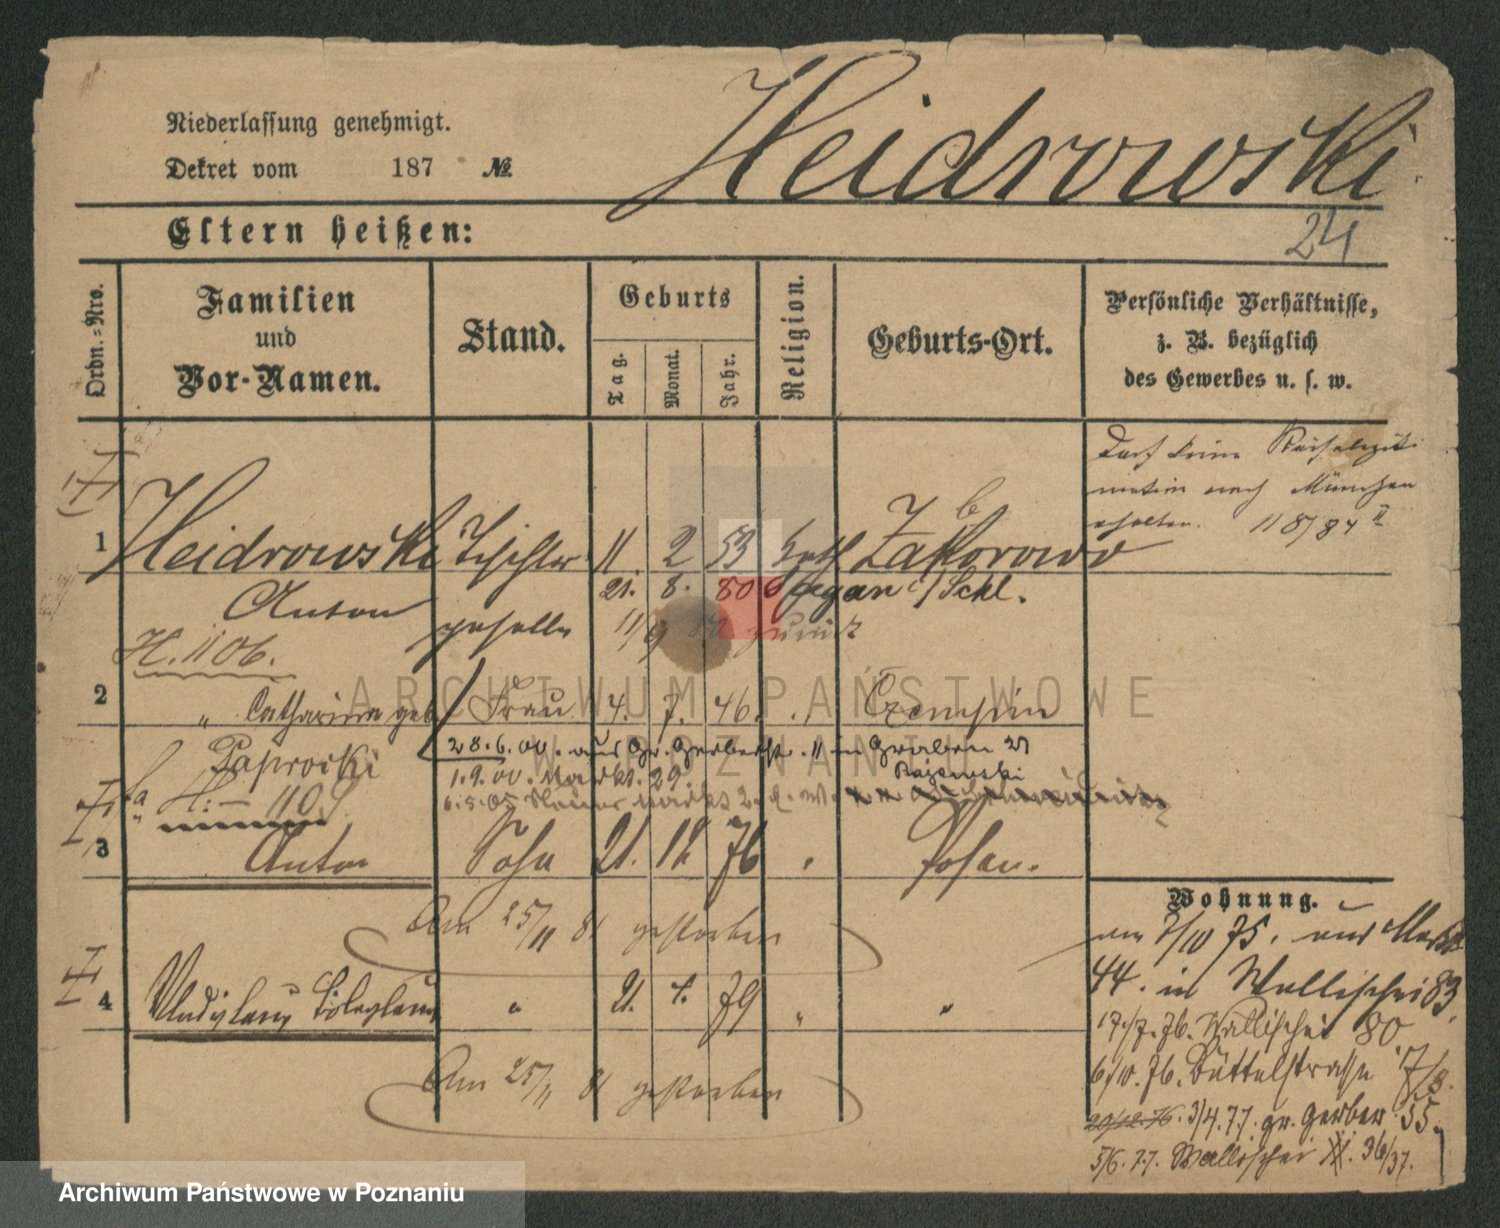 Niederlassung genehmigt.
Dekret vom 187 №
Heidrowski
24
Eltern heißen:
Ordn.=Nro.
Familien
und
Vor-Namen.
Stand.
Geburts
Tag.
Monat.
Jahr.
Religion.
Geburts-Ort.
Persönliche Verhältnisse,
z. B. bezüglich
des Gewerbes u. s. w.
Darf keine Reiselegiti
mation nach München
erhalten. 11/8/84 II
1 Heidrowski Tischler 11. 2 53 kath Zakorowo
b
Anton geselle 21. 8. 80 Sagan i/Schl.
11/9 zurück
H. 1106.
2 " Catharina geb Frau 4. 7. 46. " Czempin
Paprocki
28.6.00. aus Gr. Gerberstr. 11 in Graben 21
1.9.00. Markt. 29 Rajewski
6.5.05
H: 1109
3 Anton Sohn 21. 12 76 " Posen.
Am 25/11 81 gestorben
4 Wladislaus Boleslaus " 21. 4. 79 " "
Am 25/11 81 gestorben
Wohnung.
am 2/10 75. aus Markt
44. in Wallischei 83.
17./7. 76. Wallischei 80
6/10. 76. Büttelstrasse 17/8.
20/12.76. 3/4.77. gr. Gerber 55.
5/6. 77. Wallischei 36/37.
ARCHIWUM PAŃSTWOWE
W POZNANIU
Archiwum Państwowe w Poznaniu